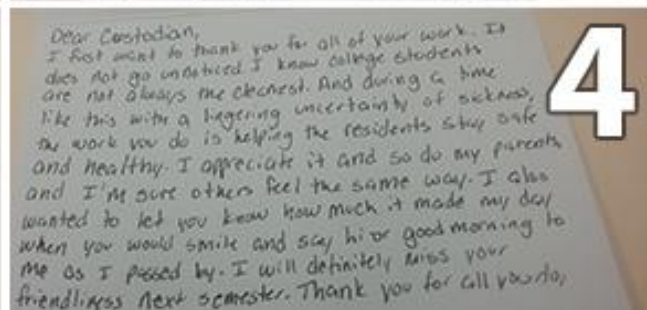 Dear Custodian,
I first want to thank you for all of your work. It
does not go unnoticed. I know college students
are not always the cleanest. And during a time
like this with a lingering uncertainty of sickness,
the work you do is helping the residents stay safe
and healthy. I appreciate it and so do my parents
and I'm sure others feel the same way. I also
wanted to let you know how much it made my day
when you would smile and say hi or good morning to
me as I passed by. I will definitely miss your
friendliness next semester. Thank you for all you do,
4